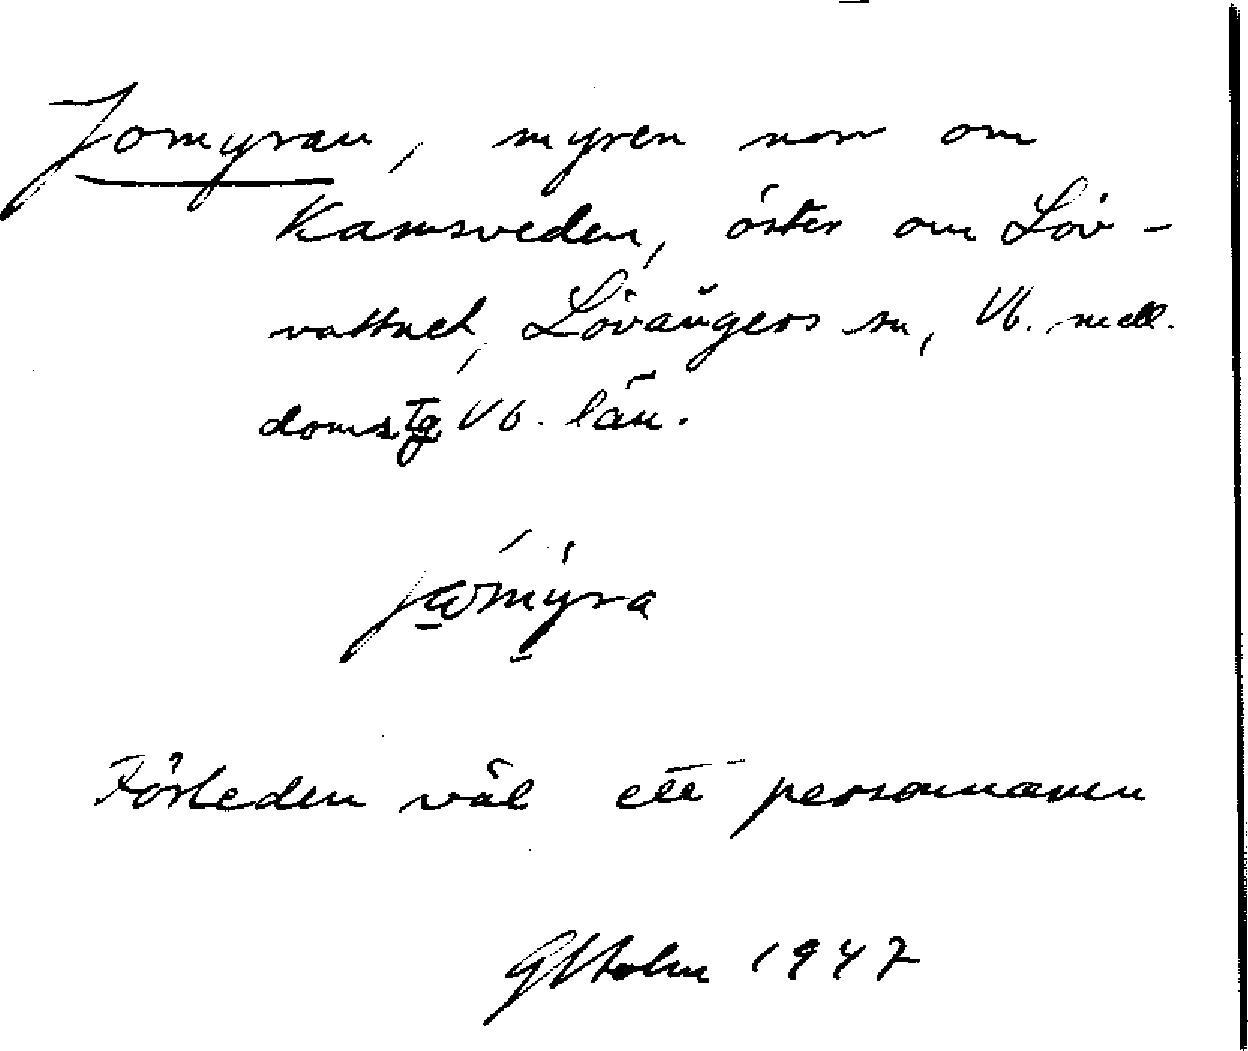 Jomyran, myren norr om
Kamsveden, öster om Löv-
vattnet, Lövångers sn, Vb. mell.
doms tg Vb. län.
jωmýra
Förleden väl ett personnamn
G Holm 1947